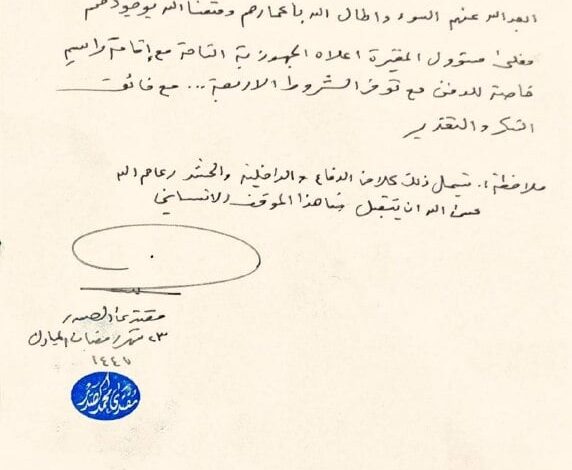 ابعد الله عنهم السوء واطال الله بأعمارهم ومتعنا الله بوجودهم
فعلى مسؤول المقبرة اعلاه الجهوزية التامة مع إقامة مراسيم
خاصة للدفن مع توفر الشروط الاربعة... مع فائق
الشكر والتقدير
ملاحظة: يشمل ذلك كلا من الدفاع والداخلية والحشد رعاهم الله
عسى الله ان يتقبل منا هذا الموقف الانساني
مقتدى الصدر
٢٣ شهر رمضان المبارك
١٤٤٦
مقتدى محمد الصدر